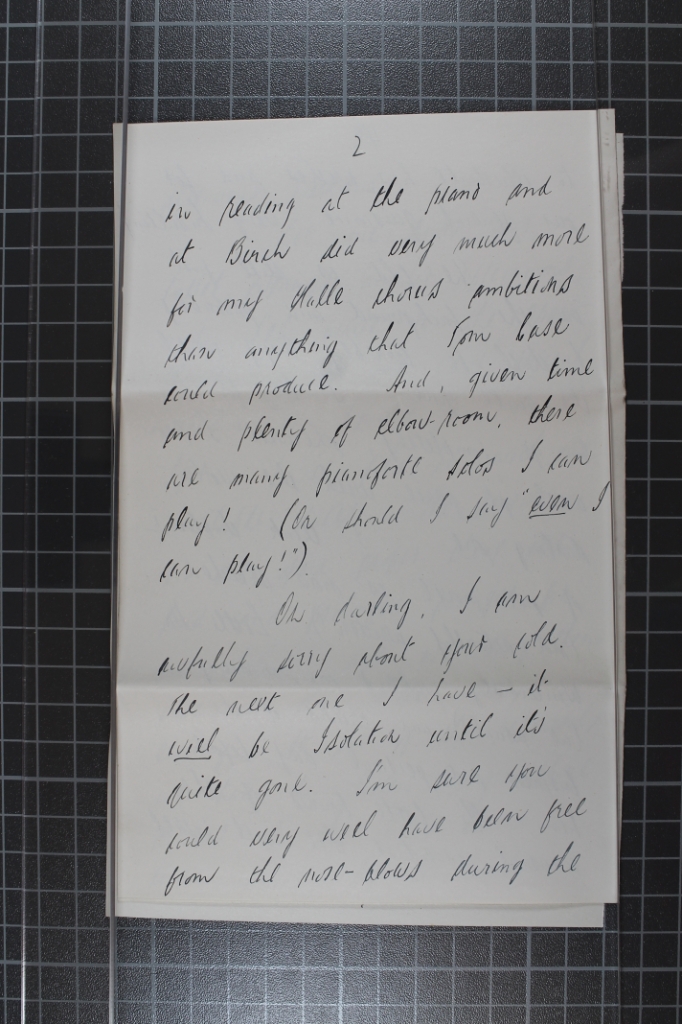 2
in reading at the piano and
at Birch did very much more
for my Halle chorus ambitions
than anything that Tom Case
could produce. And, given time
and plenty of elbow-room, there
are many pianoforte solos I can
play! (Or should I say "even I
can play!").
Oh darling, I am
awfully sorry about your cold.
The next one I have – it
will be Isolation until it's
quite gone. I'm sure you
could very well have been free
from the nose-blows during the